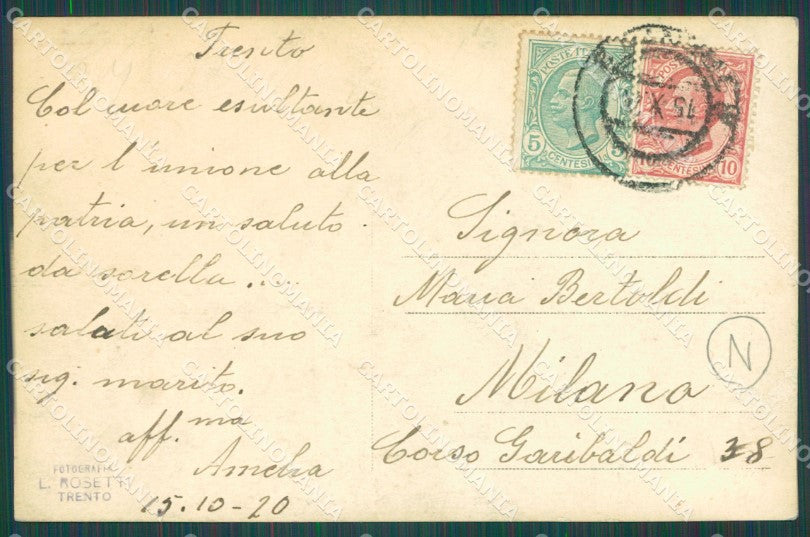 Trento
Col cuore esultante
per l'unione alla
patria, un saluto
da sorella...
saluti al suo
sig. marito.
aff.ma
Amelia
15.10-20
FOTOGRAFIA
L. ROSETTI
TRENTO
POSTE ITALIANE
5
CENTESIMI
10
CENTESIMI
15 X
Signora
Maria Bertoldi
Milano
Corso Garibaldi 38
N
CARTOLINOMANIA